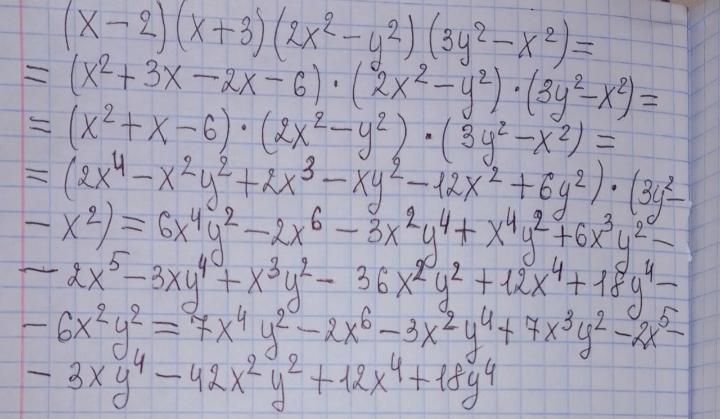 (x-2)(x+3)(2x²-y²)(3y²-x²)=
=(x²+3x-2x-6)·(2x²-y²)·(3y²-x²)=
=(x²+x-6)·(2x²-y²)·(3y²-x²)=
=(2x⁴-x²y²+2x³-xy²-12x²+6y²)·(3y²-
-x²)=6x⁴y²-2x⁶-3x²y⁴+x⁴y²+6x³y²-
-2x⁵-3xy⁴+x³y²-36x²y²+12x⁴+18y⁴-
-6x²y²=7x⁴y²-2x⁶-3x²y⁴+7x³y²-2x⁵-
-3xy⁴-42x²y²+12x⁴+18y⁴